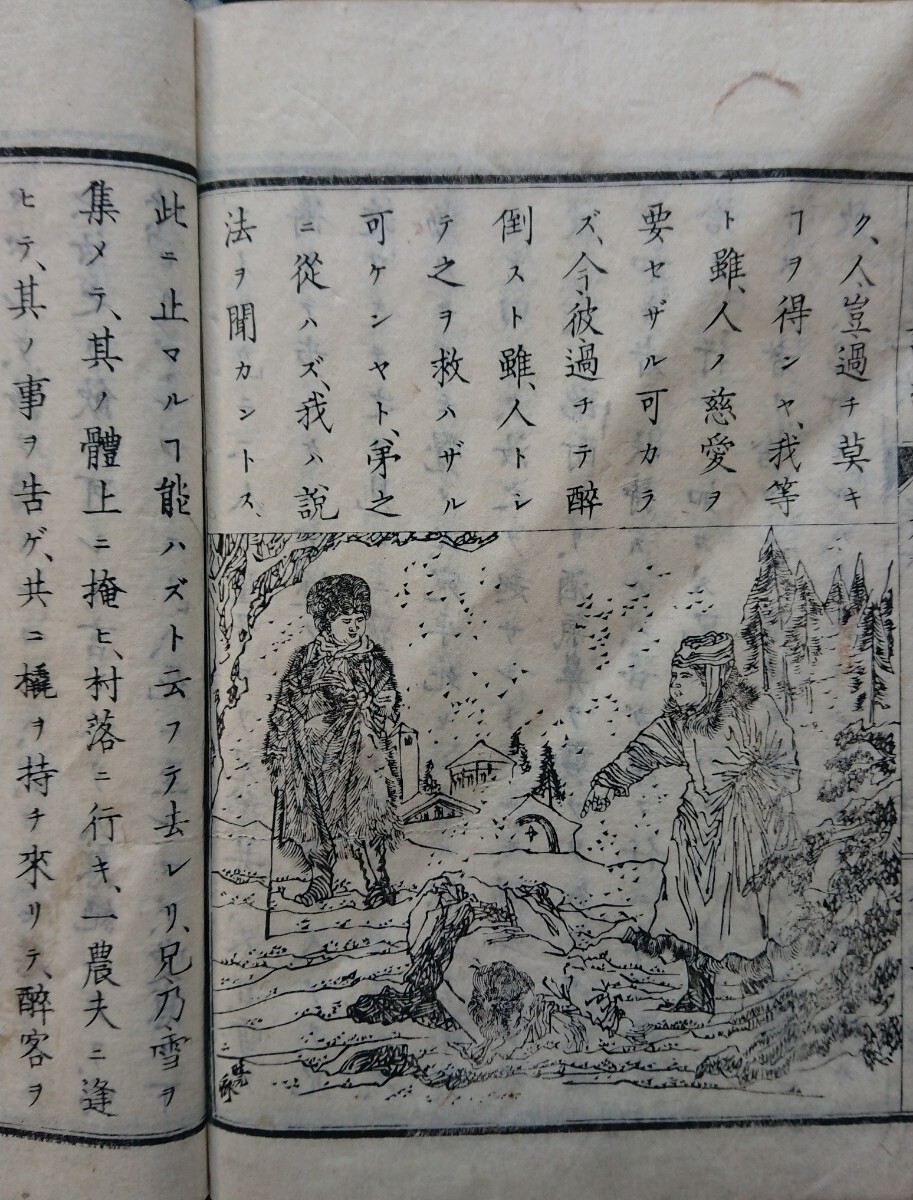 ク、人豈過チ莫キ
ヿヲ得ンヤ、我等
ト雖、人ノ慈愛ヲ
要セザル可カラ
ズ、今彼過チテ醉
倒スト雖、人トシ
テ之ヲ救ハザル
可ケンヤト、弟之
ニ從ハズ、我ハ說
法ヲ聞カントス、
此ニ止マルヿ能ハズト云フテ去レリ、兄乃雪ヲ
集メテ、其ノ體上ニ掩ヒ、村落ニ行キ、一農夫ニ逢
ヒテ、其ノ事ヲ告ゲ、共ニ橇ヲ持チ來リテ、醉客ヲ